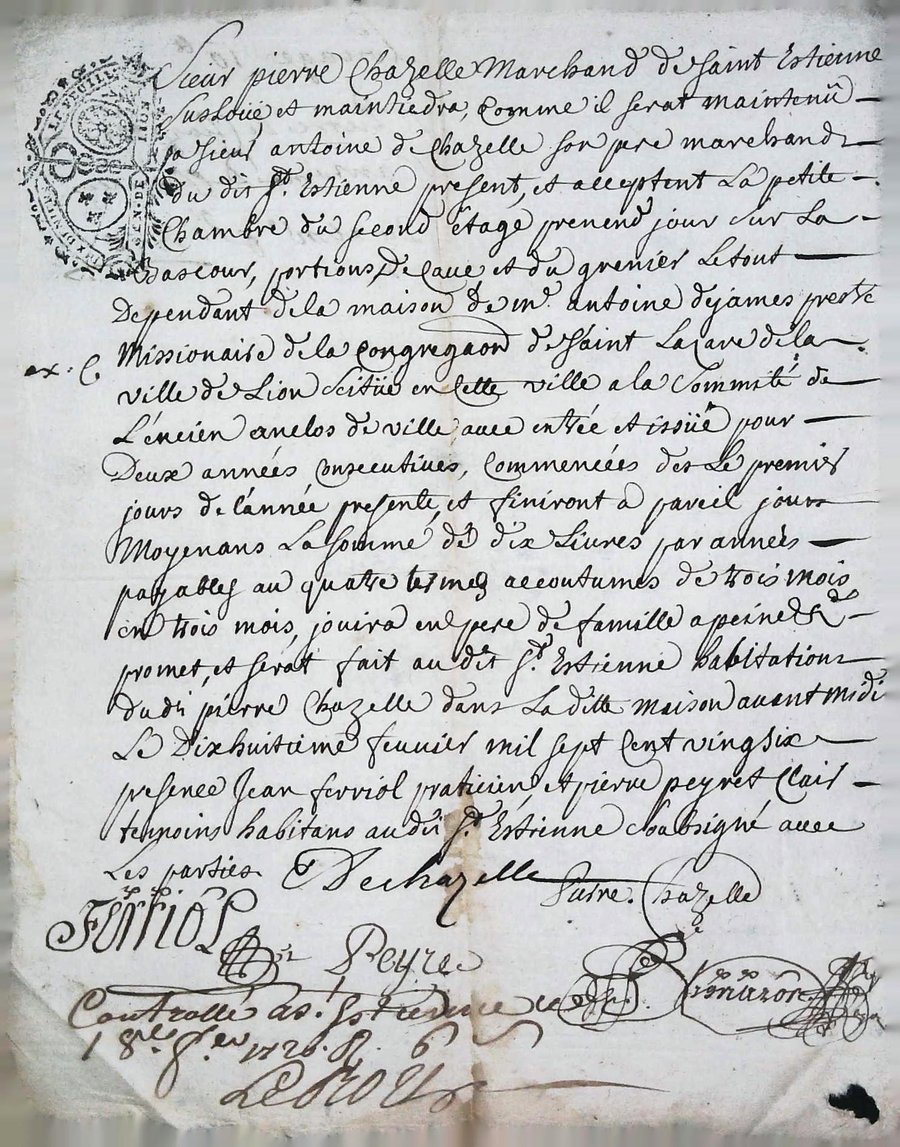 Sieur pierre Chazelle Marchand de saint Estienne
susloüé et maintiedra, comme il serat maintenü
pa sieur antoine de Chazelle son pere marchand
du dit St. Estienne present, et acceptent La petite
Chambre du second étage prenend jour sur La
Bascour, portions, de Caue et du grenier Le tout
Dependant de la maison de mr. antoine dejames prestre
ex. C. Missionaire de la Congregaon de Saint Lazare de la
ville de Lion scitüe en Cette ville a la Commité de
L'encien enclos de ville auec entrée et issüe pour
Deux années Consecutiues, Commencées des Le premier
jours de l'année presente, et finiront a pareil jours
Moyenans La somme de dix Liures par années
payables au quatre termes accoutumes de trois mois
en trois mois, jouira en pere de famille a peine &
promet, et serat fait au dit St. Estienne habitation
du dt pierre Chazelle dans La ditte maison auant midi
Le Dixhuitieme feurier mil sept Cent vingsix
presence Jean ferriol praticien et pierre peyret Clair
temoins habitans au dit St. Estienne soubsigné auec
Les parties
Dechazelle
Chazelle
Ferriol
Peyret
Controllé a St. Estienne le
18e. f.er 1726. R. 6 s